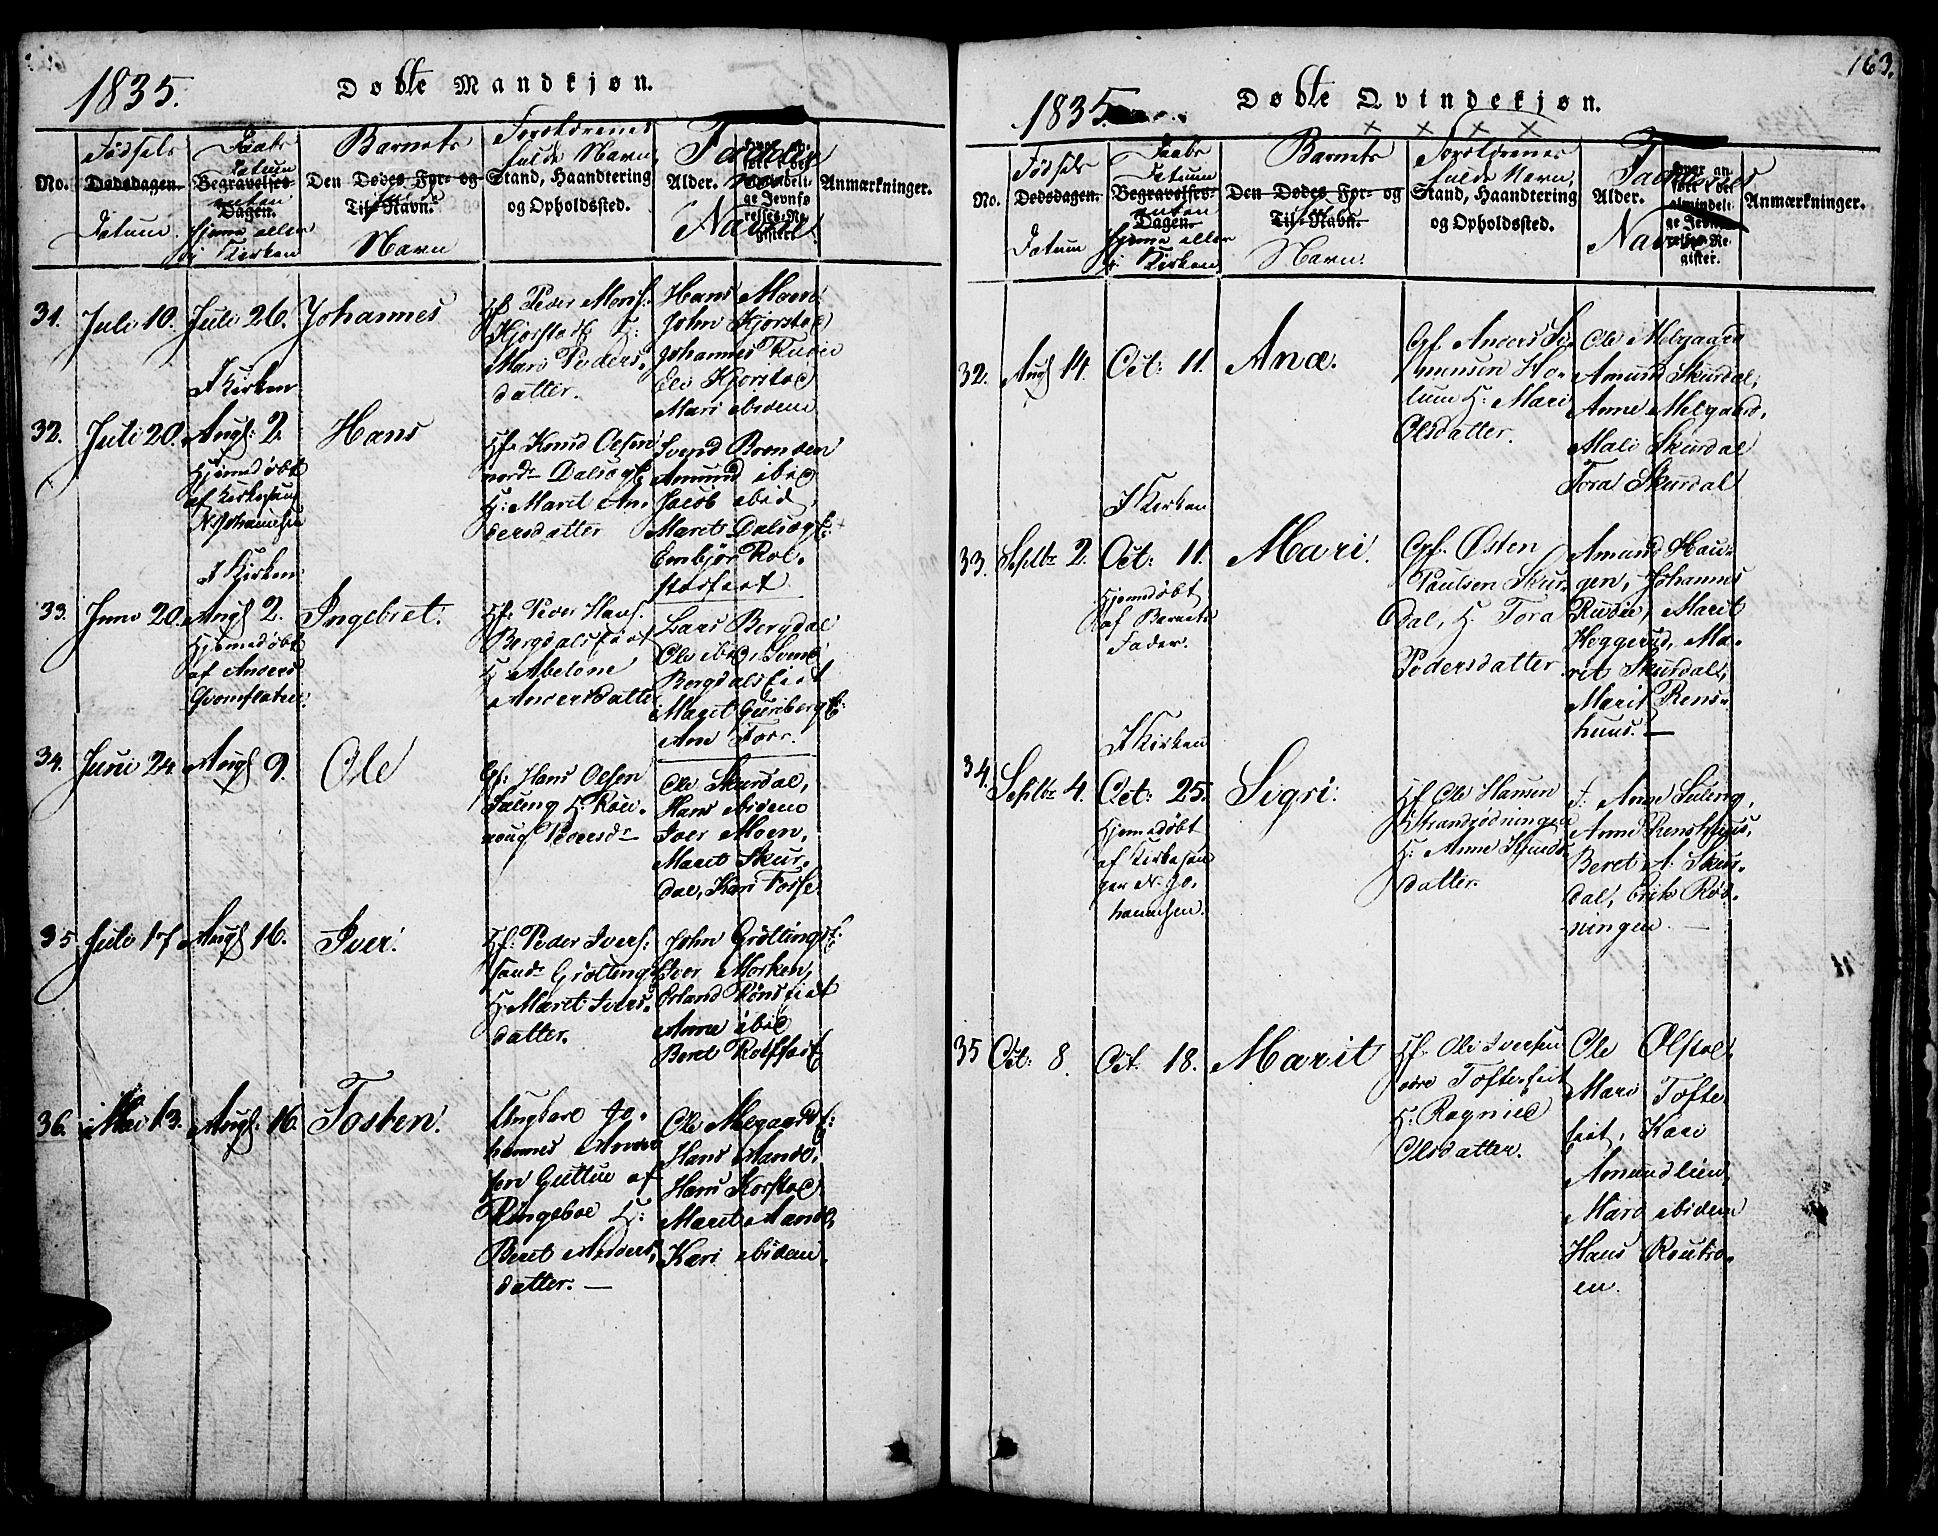 1835.
Døbte Mandkjøn.
No.
Fødsels
Dødsdagen.
Datum.
Daabs
Datum
Begravelses-
enten
Dagen.
hjeme eller
i Kirken
Barnets
Den Dødes For- og
Til-Navn.
Navn
Forældrenes
fulde Navn,
Stand, Haandtering
og Opholdssted.
Faddernes
Alder.
Navne
Anmærkninger.
31.
Juli 10.
Juli 26.
Johannes
Hf. Peder Mons:
Kjorstad H:
Mari Peders-
datter.
Hans Moen
John Kjorstad
Johannes Rudie
Eli Kjorstad
Mari ibidem
I Kirken
32.
Juli 20.
Augs: 2.
Hjemedøbt
af Kirkesang
N. Johannesen
Hans
Hf. Knud Olsen
nordr Dalsegl
H: Marit An-
dersdatter
Svend Brenden
Amund ibid
Jacob ibid
Marit Dalsegl:
Embjør Rol-
storfeet
I Kirken
33.
Juni 20.
Augs 2.
Hjemedøbt
af Anders
Ingebret.
Hf: Peder Hans:
Bergdalseiet
H Abelone
Andersdatter
Lars Bergdal
Ole ibid, Svend
Bergdalseiet
Marit
Ane Foss.
34.
Juni 24
Augs 9.
Ole
Gf: Hans Olsen
Suling H. Rön-
noug Pedersdr
Ole Skurdal,
Hans ibidem
Iver Moen,
Marit Skur-
dal, Kari Fosse
35
Juli 17
Augs 16.
Iver.
Hf: Peder Ivers:
sandr Grøtting
H: Marit Ivers-
datter.
John Grøtting
Iver Morken,
Erland Rönseiet
Anne ibid
Beret
36.
Mai 13.
Augs. 16.
Tosten.
Ungkarl Jo-
hannes Anders
sen Guttue af
Ringeboe H:
Beret Anders-
datter. —
Ole Melgaards:
Hans Sande,
Hans Korstad
Marit Sande,
Kari ibidem.
163.
1835.
Døbte Qvindekjøn.
x x x x
No.
Fødsels
Dødsdagen.
Datum
Daabs
Datum
Begravelses-
enten
Dagen.
hjeme eller
i Kirken
Barnets
Den Dødes For- og
Til-Navn.
Navn.
Forældrenes
fulde Navn,
Stand, Haandtering
og Opholdssted.
Faddernes
Alder.
Navne
Hvor an-
ført i det
almindeli-
ge Jevnfø-
relses-Re-
gister.
Anmærkninger.
32.
Augs 14.
Oct: 11.
Ane.
Gf. Anders Si-
monsen Ho-
lum H. Mari
Olsdatter.
Ole Melgaard
Amund Skurdal,
Anne Melgaard,
Mali Skurdal
Tora Skurdal
I Kirken
33.
Septbr 2.
Oct: 11.
Hjemedøbt
af Barnets
Fader.
Mari.
Gf. Østen
Paulsen Skur-
dal, H. Tora
Pedersdatter
Amund Hau-
gen, Johannes
Rudie, Marit
Heggerud, Ma-
rit Skurdal,
Marit Rens-
huus. —
I Kirken
34.
Septbr 4.
Oct: 25.
Hjemedøbt
af Kirkesan-
ger N. Jo-
hannesen.
Sigri.
Hf. Ole Hansen
Strandrødningen
H: Anne Knuds-
datter.
J. Anne Suling,
Anne Renshuus,
Beret A. Skur-
dal, Erik Rød-
ningen —
35
Oct: 8.
Oct. 18.
Marit
Hf. Ole Iversen
øvre Tofteseiet
H. Ragnild
Olsdatter.
Ole Olstad,
Mari Tofte
eiet, Kari
Amundlien,
Mari ibidem
Hans
en.